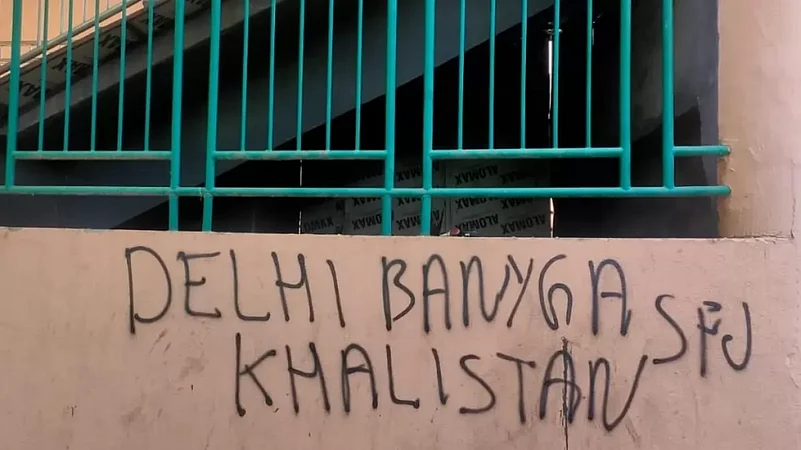 ALOMAX ALOMAX
ALOMAX ALOMAX
ALOMAX ALOMAX
DELHI BANYGA
SFJ
KHALISTAN